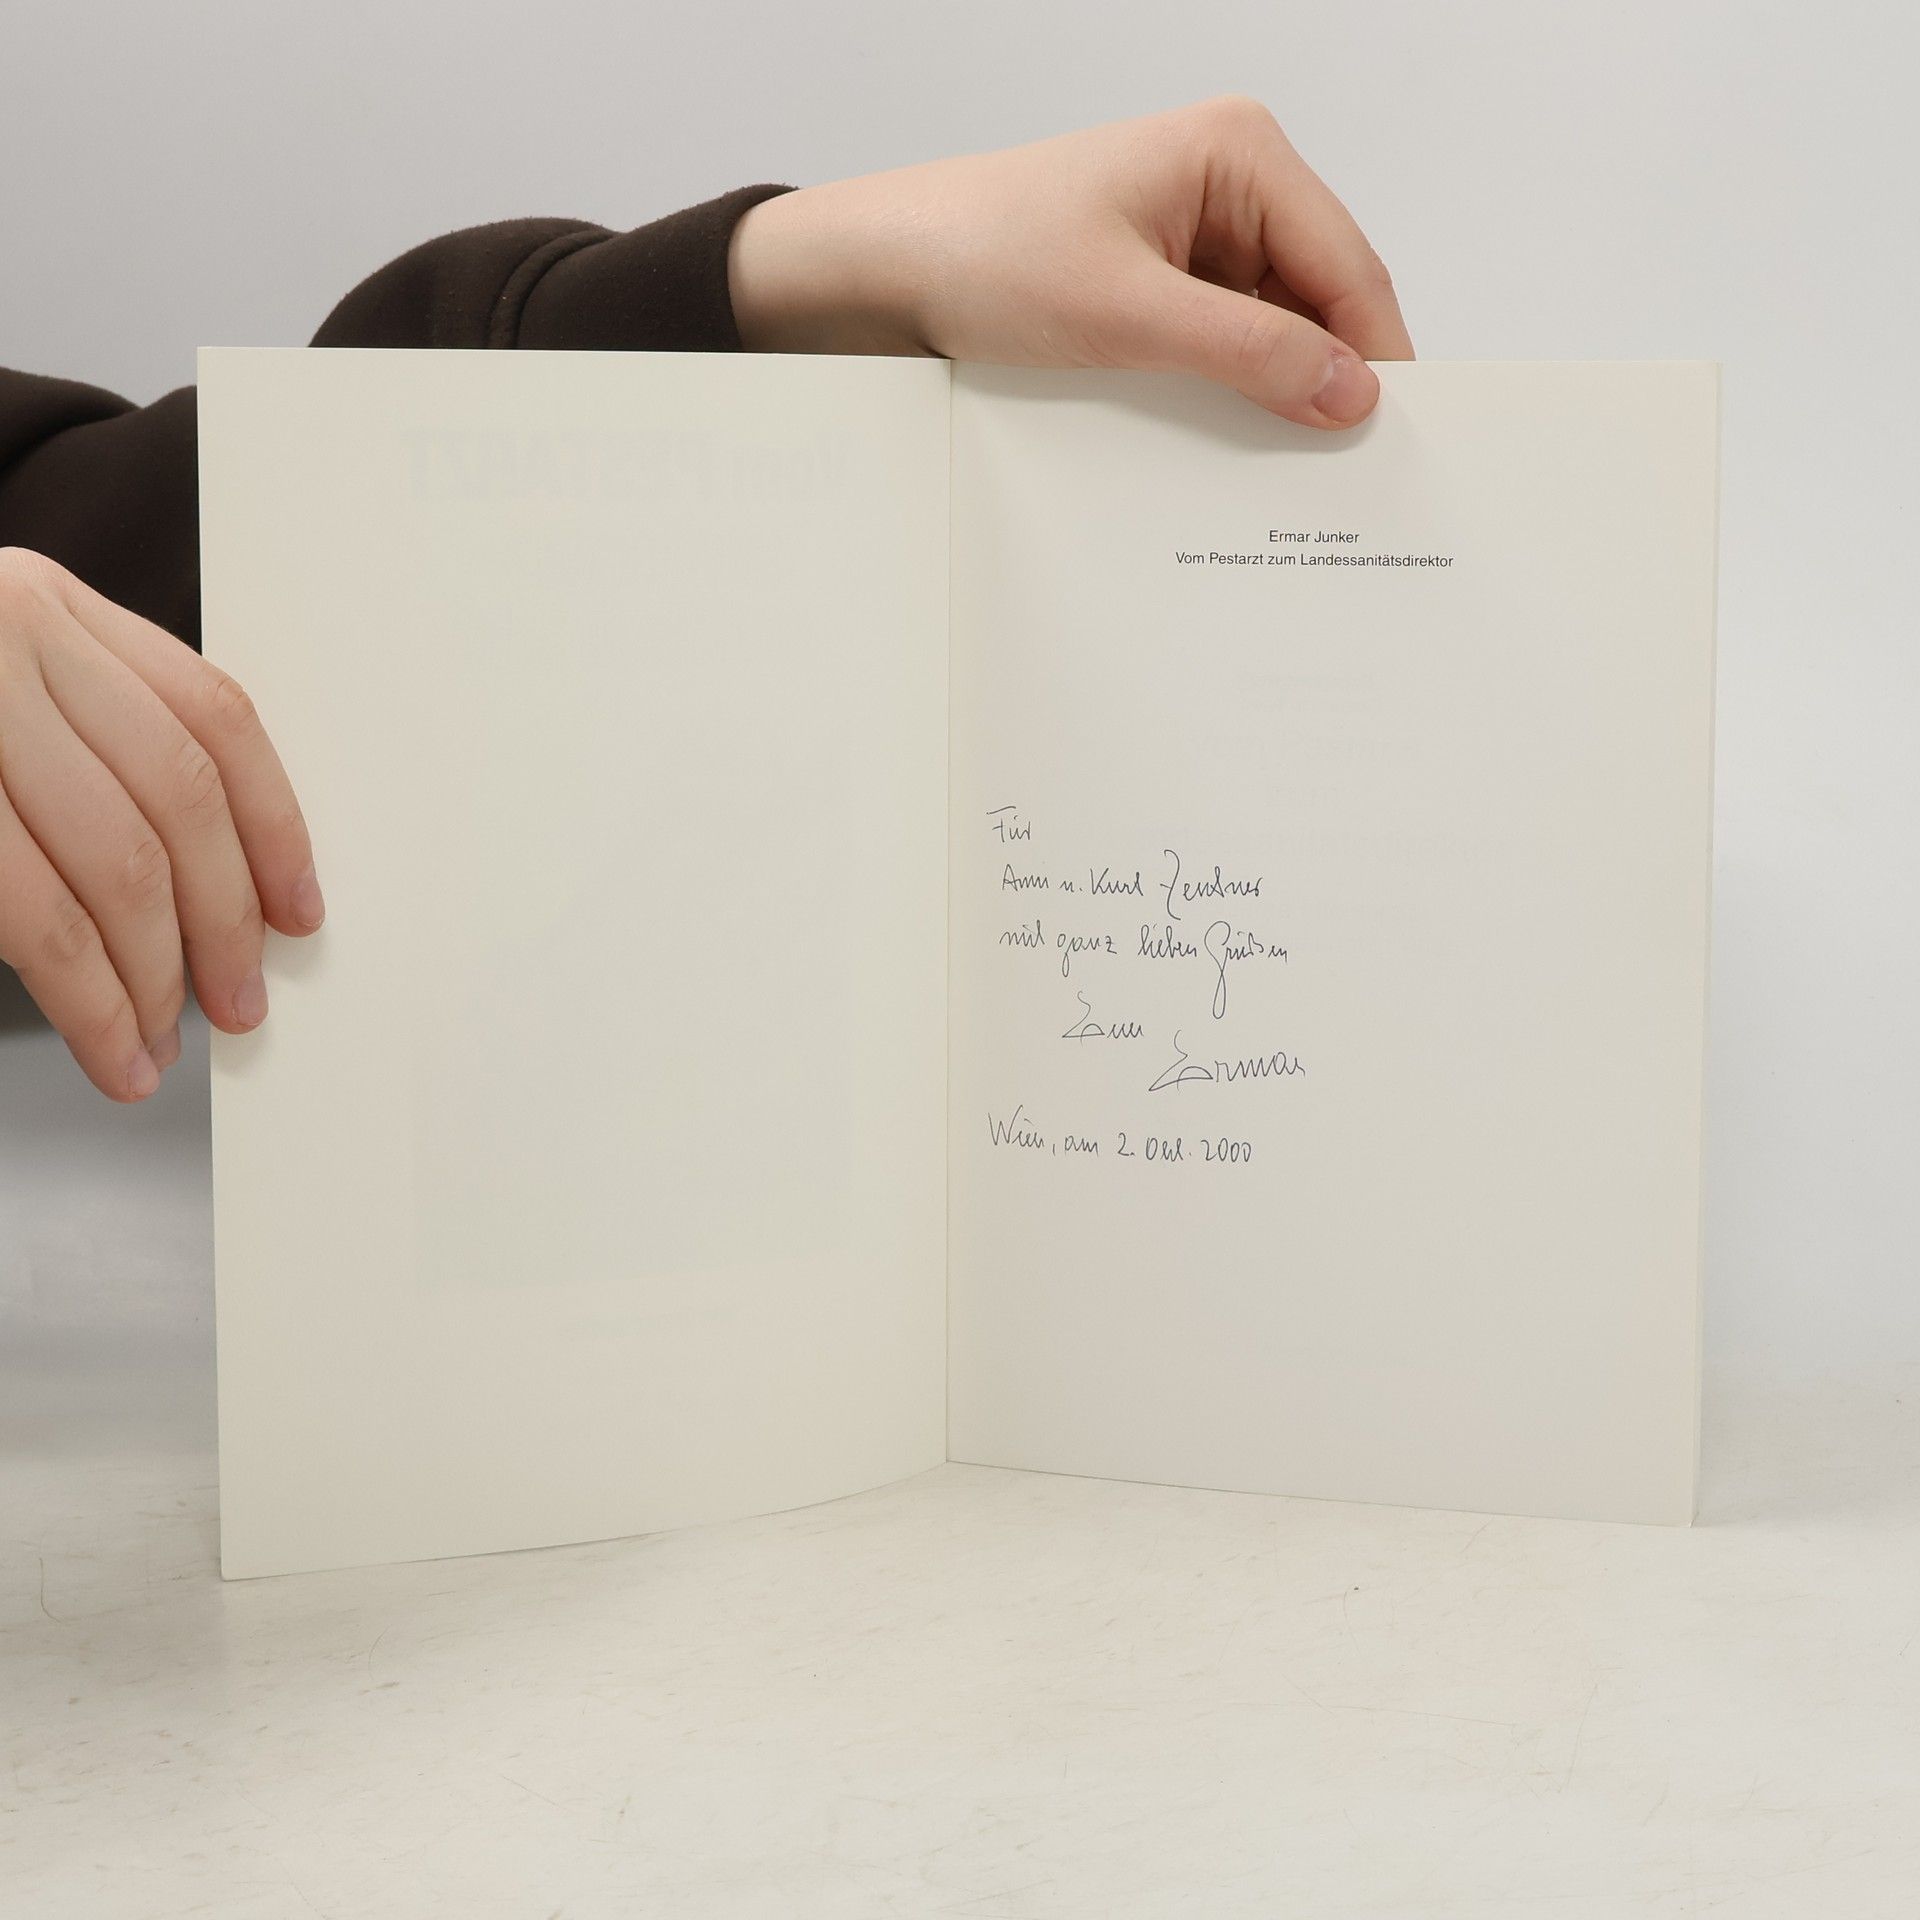 Ermar Junker
Vom Pestarzt zum Landessanitätsdirektor
Für
Anni u. Kurt Zentner
mit ganz lieben Grüßen
Euer
Ermar
Wien, am 2. Okt. 2000